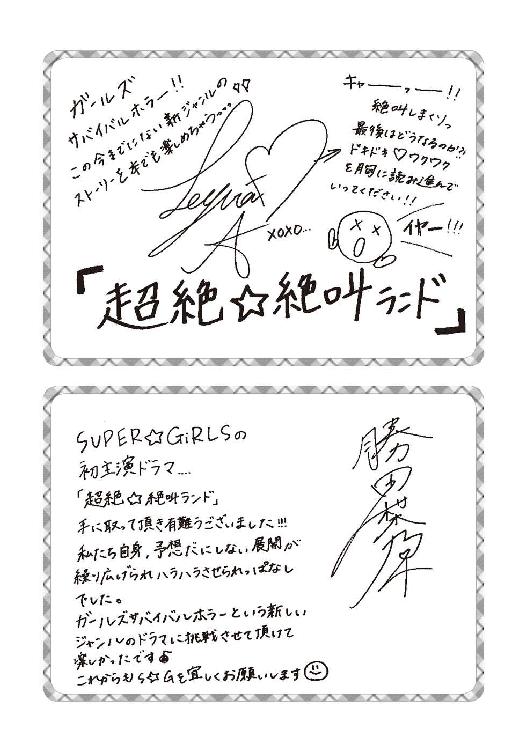 ガールズ
サバイバルホラー!!
この今までにない新ジャンルの
ストーリーを本でも楽しめちゃう...♡♡
キャーーッー!!
絶叫しまくりっ
最後はどうなるのか!?
ドキドキ♡ワクワク
を胸に読み進んで
いってください!!
イヤー!!!
xoxo...
「超絶☆絶叫ランド」
SUPER☆GiRLSの
初主演ドラマ....
「超絶☆絶叫ランド」
手に取って頂き有難うございました!!!
私たち自身、予想だにしない展開が
繰り広げられハラハラさせられっぱなし
でした。
ガールズサバイバルホラーという新しい
ジャンルのドラマに挑戦させて頂けて
楽しかったです
これからもS☆Gを宜しくお願いします
勝田梨乃